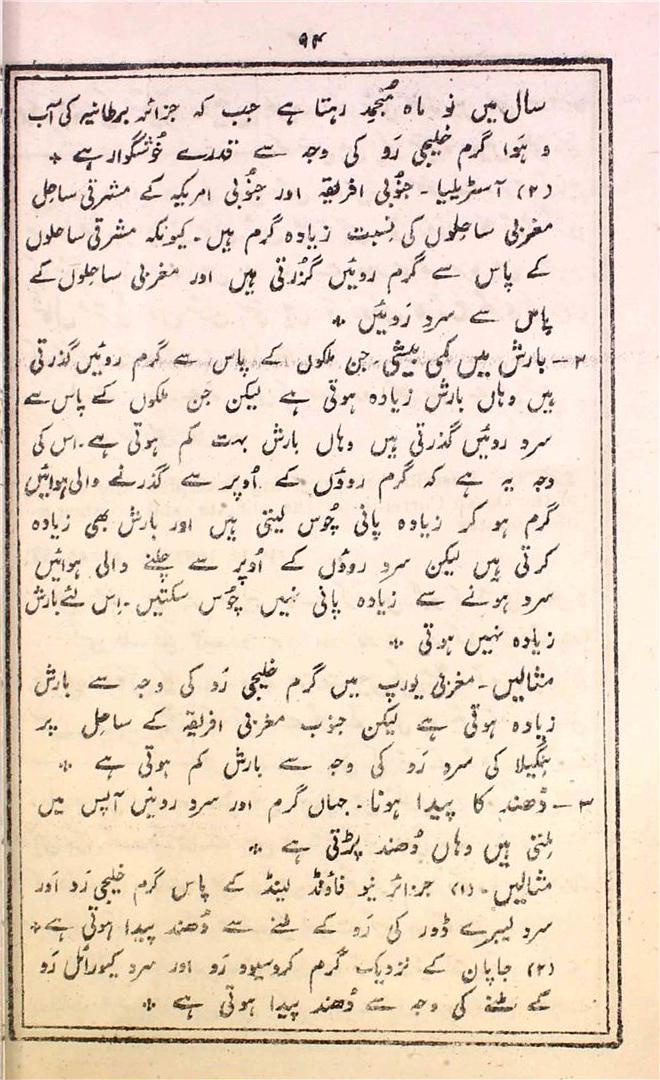 ۹۴
سال میں نو ماہ مُنجمِد رہتا ہے جب کہ جزائر برطانیہ کی آب
و ہَوا گرم خلیجی رَو کی وجہ سے قدرے خُوشگوار ہے ٭
(۲) آسٹریلیا۔ جنُوبی افریقہ اور جنُوبی امریکہ کے مشرقی ساحِل
مغربی ساحِلوں کی نِسبت زیادہ گرم ہیں۔ کیونکہ مشرقی ساحلوں
کے پاس سے گرم روئیں گزُرتی ہیں اور مغربی ساحِلوں کے
پاس سے سرد رَوئیں ٭
۲۔ بارش میں کمی بیشی۔ جن ملکوں کے پاس سے گرم روئیں گذرتی
ہیں وہاں بارش زیادہ ہوتی ہے لیکن جَن ملکوں کے پاس سے
سرد روئیں گذرتی ہیں وہاں بارش بہت کم ہوتی ہے۔ اس کی
وجہ یہ ہے کہ گرم روؤں کے اُوپر سے گذرنے والی ہوائیں
گرم ہو کر زیادہ پانی چُوس لیتی ہیں اور بارش بھی زیادہ
کرتی ہیں لیکن سرد روؤں کے اُوپر سے چلنے والی ہوائیں
سرد ہونے سے زیادہ پانی نہیں چُوس سکتیں۔ اِس لئے بارش
زیادہ نہیں ہوتی ٭
مثالیں۔ مغربی یورپ میں گرم خلیجی رَو کی وجہ سے بارش
زیادہ ہوتی ہے لیکن جنوب مغربی افریقہ کے ساحِل پر
بنگیلا کی سرد رَو کی وجہ سے بارش کم ہوتی ہے ٭
۳۔ دُھند کا پیدا ہونا۔ جہاں گرم اور سرد روئیں آپس میں
مِلتی ہیں وہاں دُھند پڑتی ہے ٭
مثالیں۔ (۱) جزائر نیو فاؤنڈ لینڈ کے پاس گرم خلیجی رَو اَور
سرد لیبرے ڈور کی رَو کے ملنے سے دُھند پیدا ہوتی ہے ٭
(۲) جاپان کے نزدیک گرم کروسیوو رَو اور سرد کیورائل رَو
کے ملنے کی وجہ سے دُھند پیدا ہوتی ہے ٭